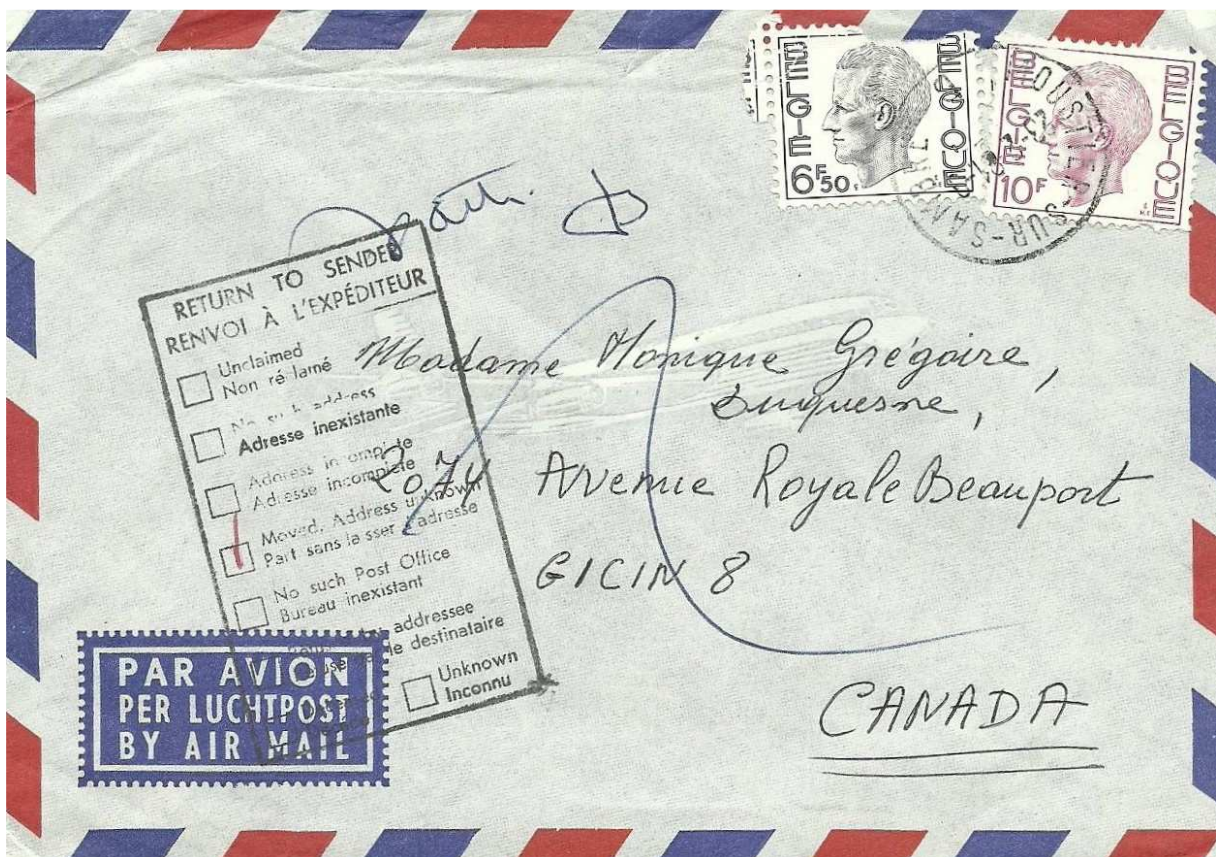 BELGIE BELGIQUE
6F50
BELGIE BELGIQUE
10F
MOUSTIER-SUR-SAMBRE
RETURN TO SENDER
RENVOI À L'EXPÉDITEUR
Unclaimed
Non réclamé
No such address
Adresse inexistante
Address incomplete
Adresse incomplète
Moved, Address unknown
Part sans laisser d'adresse
No such Post Office
Bureau inexistant
addressee
le destinataire
Unknown
Inconnu
Madame Monique Grégoire,
Duquesne,
2074 Avenue Royale Beauport
GICIN 8
CANADA
PAR AVION
PER LUCHTPOST
BY AIR MAIL